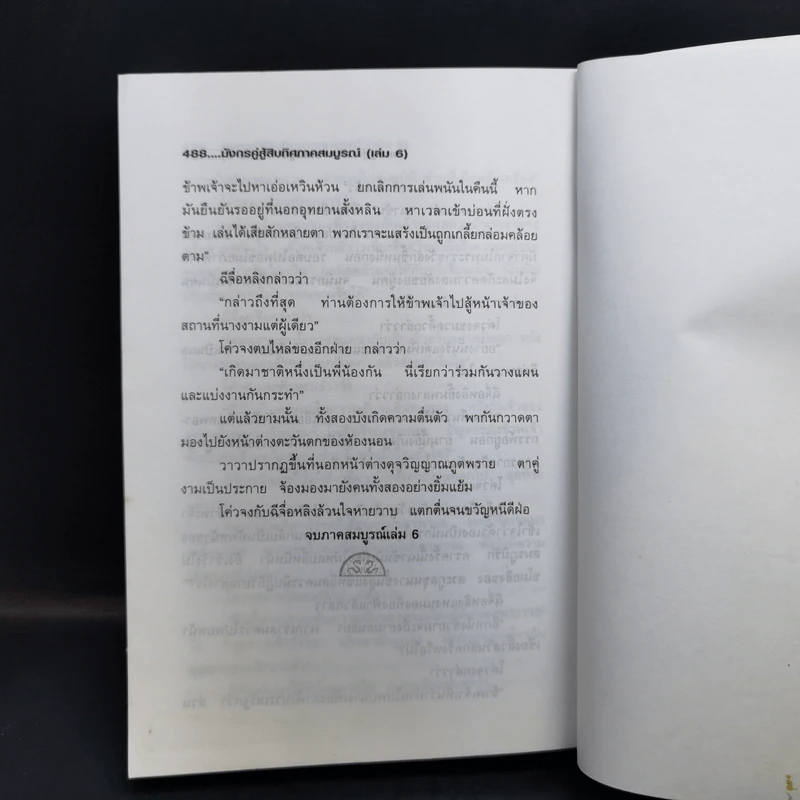 488....มังกรคู่สู้สิบทิศภาคสมบูรณ์ (เล่ม 6)
ข้าพเจ้าจะไปหาเอ่อเหวินห้วน ยกเลิกการเล่นพนันในคืนนี้ หาก
มันยืนยันรออยู่ที่นอกอุทยานสั้งหลิน หาเวลาเข้าบ่อนที่ฝั่งตรง
ข้าม เล่นได้เสียสักหลายตา พวกเราจะแสร้งเป็นถูกเกลี้ยกล่อมคล้อย
ตาม”
ฉีจื่อหลิงกล่าวว่า
“กล่าวถึงที่สุด ท่านต้องการให้ข้าพเจ้าไปสู้หน้าเจ้าของ
สถานที่นางงามแต่ผู้เดียว”
โค่วจงตบไหล่ของอีกฝ่าย กล่าวว่า
“เกิดมาชาติหนึ่งเป็นพี่น้องกัน นี่เรียกว่าร่วมกันวางแผน
และแบ่งงานกันกระทำ”
แต่แล้วยามนั้น ทั้งสองบังเกิดความตื่นตัว พากันกวาดตา
มองไปยังหน้าต่างตะวันตกของห้องนอน
วาวาปรากฏขึ้นที่นอกหน้าต่างดุจวิญญาณภูตพราย ตาคู่
งามเป็นประกาย จ้องมองมายังคนทั้งสองอย่างยิ้มแย้ม
โค่วจงกับฉีจื่อหลิงล้วนใจหายวาบ แตกตื่นจนขวัญหนีดีฝ่อ
จบภาคสมบูรณ์เล่ม 6